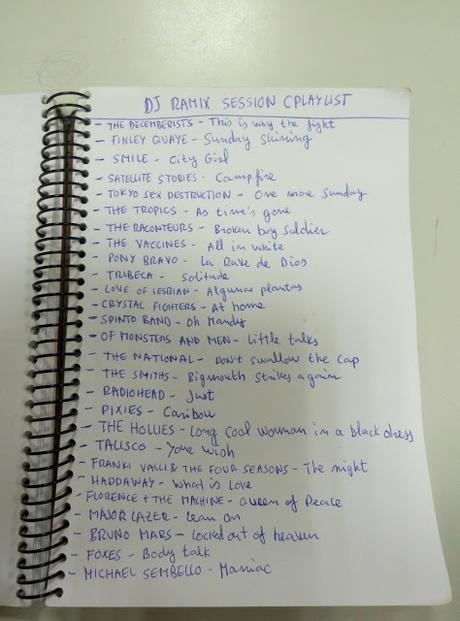 DJ RAMIX SESSION CPLAYLIST
- THE DECEMBERISTS - This is why the fight
- FINLEY QUAYE - Sunday shining
- SMILE - City Girl
- SATELLITE STORIES - Campfire
- TOKYO SEX DESTRUCTION - One more Sunday
- THE TROPICS - As time's gone
- THE RACONTEURS - Broken boy soldier
- THE VACCINES - All in white
- PONY BRAVO - La Rave de Dios
- TRIBECA - Solitude
- LOVE OF LESBIAN - Algunas plantas
- CRYSTAL FIGHTERS - At home
- SPINTO BAND - Oh Mandy
- OF MONSTERS AND MEN - Little talks
- THE NATIONAL - Don't swallow the cap
- THE SMITHS - Bigmouth strikes again
- RADIOHEAD - Just
- PIXIES - Caribou
- THE HOLLIES - Long cool woman in a black dress
- TALISCO - Your wish
- FRANKI VALLI & THE FOUR SEASONS - The night
- HADDAWAY - What is love
- FLORENCE + THE MACHINE - Queen of Peace
- MAJOR LAZER - Lean on
- BRUNO MARS - Locked out of heaven
- FOXES - Body talk
- MICHAEL SEMBELLO - Maniac